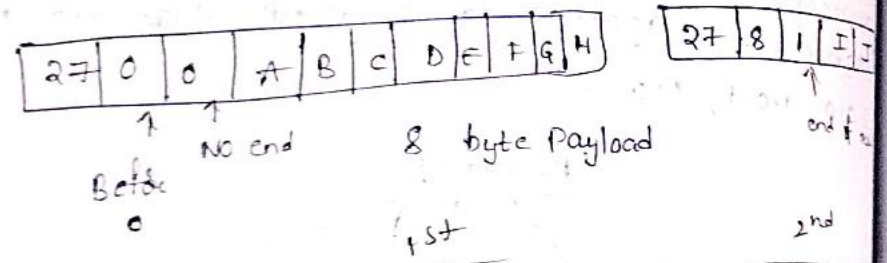 27 0 0 A B C D E F G H
27 8 1 I J
NO end
end
8 byte Payload
Before
0
1st
2nd